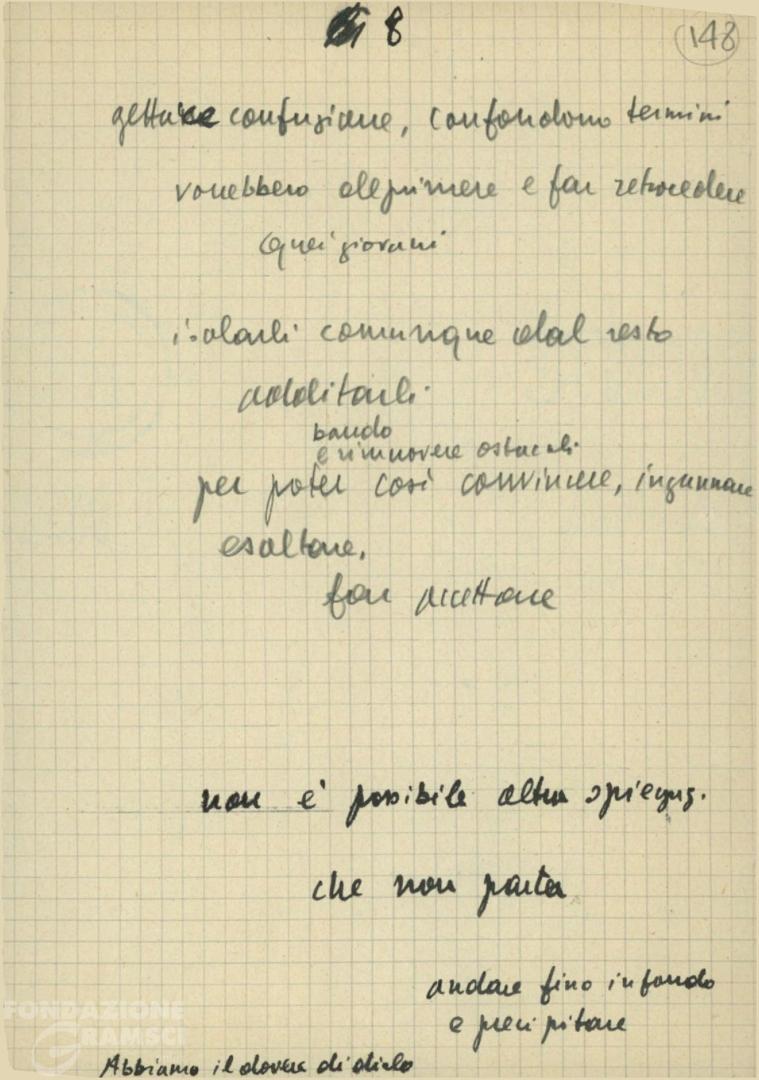 8
148
gettare confusione, confondono termini
vorrebbero deprimere e far retrocedere
quei giovani
isolarli comunque dal resto
additarli
bando
e rimuovere ostacoli
per poter così convincere, ingannare
esaltare,
far accettare
non è possibile altra spiegaz.
che non parta
andare fino in fondo
e precipitare
Abbiamo il dovere di dirlo
FONDAZIONE
GRAMSCI